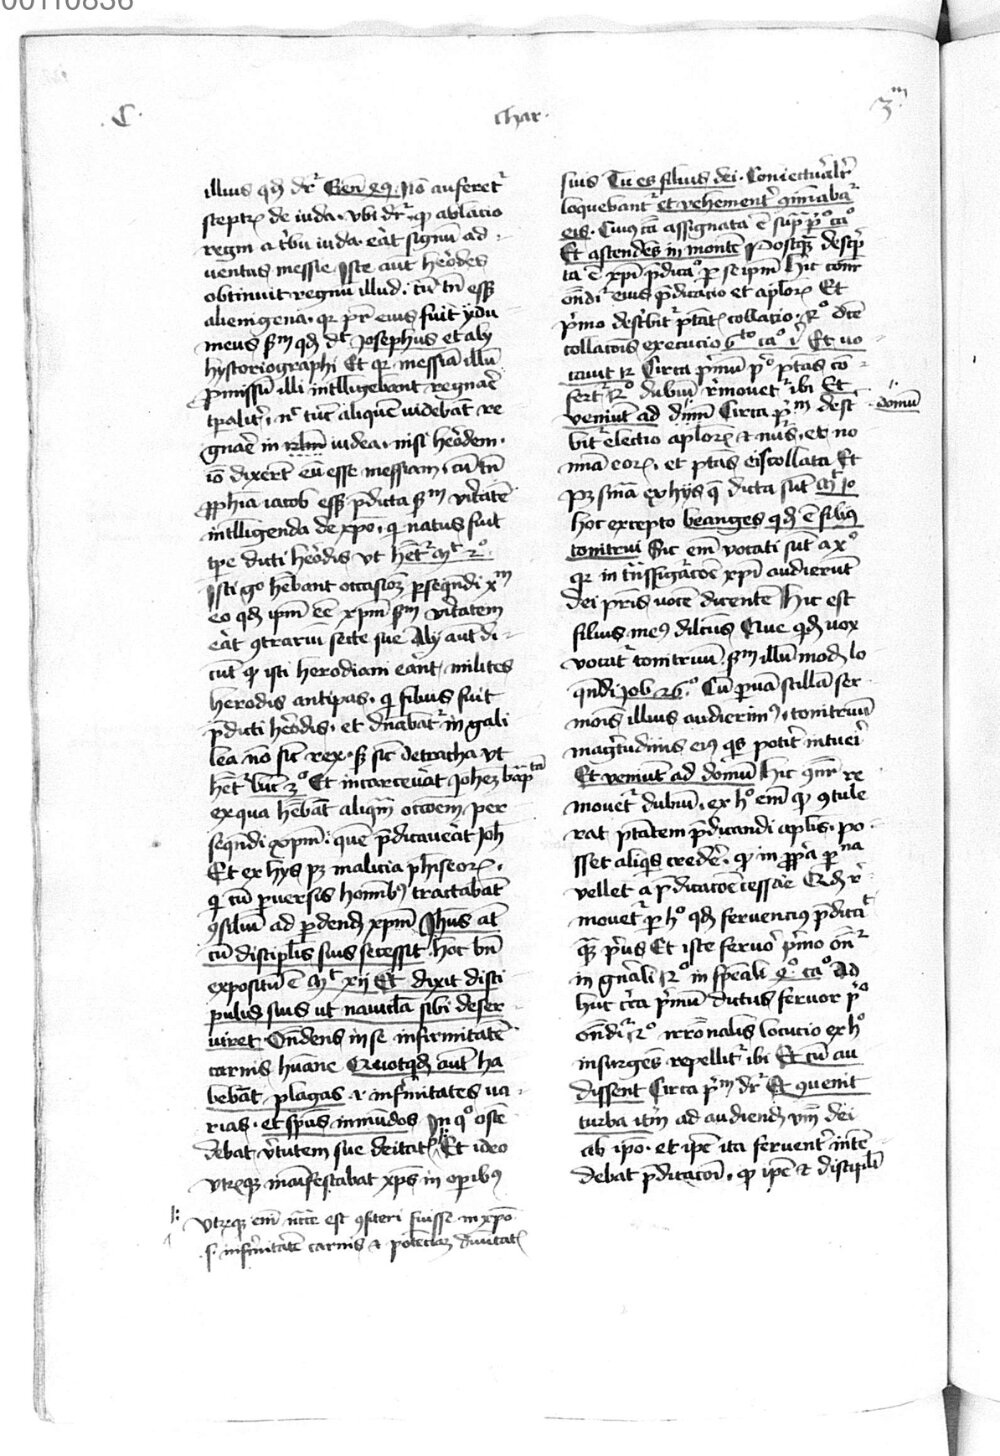 00110836
C. Mar. 3m
illius qn̄ dr̄ Gen̄ 49. Nō auferet᷑
sceptrꝫ de iuda. vbi dr̄ ꝙ ablacio
regni a tribu iuda. eāt signū ad
uentus messie Iste aūt herodes
obtinuit regnū illud. cū tn̄ eēt
alienigena. qr pr̄ eius fuit ydu
meus sm qd̄ dt̄ Josephus et alij
hystoriographi Et qr messiā illū
ꝓmissū illi intelligebant regnaē
tp̄alit᷑. nc̄ tūc aliquē uidebāt re
gnaē in iudea. nisi herōdem.
iō dixerūt eū esse messiam. cū tn̄
ꝓphīa iacob eēt p̄dicta sm v̄itatē
intelligenda de xp̄o. qi natus fuit
tp̄e dicti herōdis vt hēt᷑ mt 2o.
Isti g̊ hēbant occasiōꝫ ꝑseqn̄di xm
eo qd̄ ip̄m eē xp̄m sm v̄itatem
eāt ꝯtrariū secte sue Alij aūt di
cūt ꝙ isti herodiani eāt milites
herodis antipas. qi filius fuit
p̄dicti herōdis. et dn̄abat᷑ in gali
lea nō sic rex. sꝫ sic detracha vt
hēt᷑ luc̄ 3o Et incarcerāt Johēꝫ bapttā
ex qua hēbāt aliqm̄ occōem per
seqn̄di xp̄m. quē p̄dicauēat Joh̄
Et ex hijs pꝫ malicia phīseorꝫ.
qi cū ꝑuersis homībꝰ tractabāt
ꝯsiliū ad ꝑdend̄ xp̄m Jhūs at̄
cū discipl̄is suis secessit hoc bn̄
expositū ē mt xij Et dixit disci
pulis suis ut nauicl̄a sibi deser
uiret. Ōndens in se infirmitatē
carnis hūane Quotqd̄ aūt ha
bebāt plagas ⁊ infirmitates ua
rias. et sp̄us inmūdos In qo ostē
debat v̄tutem sue deitatꝭ Et ideo
vtrꝫqꝫ manifestabat xp̄s in oꝑibꝰ
vtrꝫqꝫ enī nc̄ce est ꝯfiteri fuisse in xp̄o
s. infirmitatē carnis ⁊ potenciaꝫ diuitatꝭ
sius Tu es filius dei. Coniectu᷑alr̄
loquebant᷑ et vehement᷑ ꝯminabat᷑
eis. Cuiꝰ cā assignata ē supra po cao
Et ascendēs in montē Postqꝫ descp̄
ta ē xp̄i p̄dicaō ꝑ seip̄m hic cōnr
ōndi᷑ eius p̄dicacio et aplorꝫ Et
p̄mo describit᷑ ptātꝭ collatio. 2o dcē
collacōis execucio 6to cao i᷑ Et uo
cauit 12 Circa p̄mū po ptas cō
fert᷑ 2o dubiū r̄mouet᷑ ibi Et
veniūt ad domū Circa pm desc
domū
bit᷑ electio aplorꝫ ⁊ nūs. et no
mīa eorꝫ. et ptās eis collata Et
pꝫ sn̄ia ex hijs q̄ dicta sūt mt 10
hoc excepto beanges qd̄ ē filiꝰ
tonitrui Sic enī vocati sūt a xo
qr in tn̄sfigacōe xp̄i audierūt
dei pr̄is uocē dicentē Hic est
filius meꝰ dilcūs Que qd̄ uox
vocat᷑ tonitruū. sm illud mod̄ lo
qn̄di Job 26o. Cū ꝑuā stillā ser
mōis illius audierimꝰ. tonitruū
magnitudīnis eiꝰ qs poterit intueri
Et veniūt ad domū Hic ꝯnr re
mouet᷑ dubiū. ex ho enī ꝙ ꝯtule
rat ptātem p̄dicandi aplis. po
sset aliqis credē. ꝙ in ꝓpa ꝑna
vellet a p̄dicacōe cessare Qd̄ r̄
mouet᷑ ꝑ ho qd̄ ferueniciꝰ p̄dicat
qꝫ priꝰ Et iste feruor p̄mo ōn᷑
in gn̄ali 2o in sp̄cali 4o cao Ad
huc circa p̄mū dictus feruor po
ōndi᷑ 2o irrōnalis locucio ex ho
insurgēs repellit᷑ ibi Et cū au
dissent Circa pm dr̄ Et ꝯuenit
turba it̄m ad audiend̄ vm̄ dei
ab ip̄o. et ip̄e ita feruent᷑ intē
debat p̄dicacōi. ꝙ ip̄e ⁊ discipl̄i